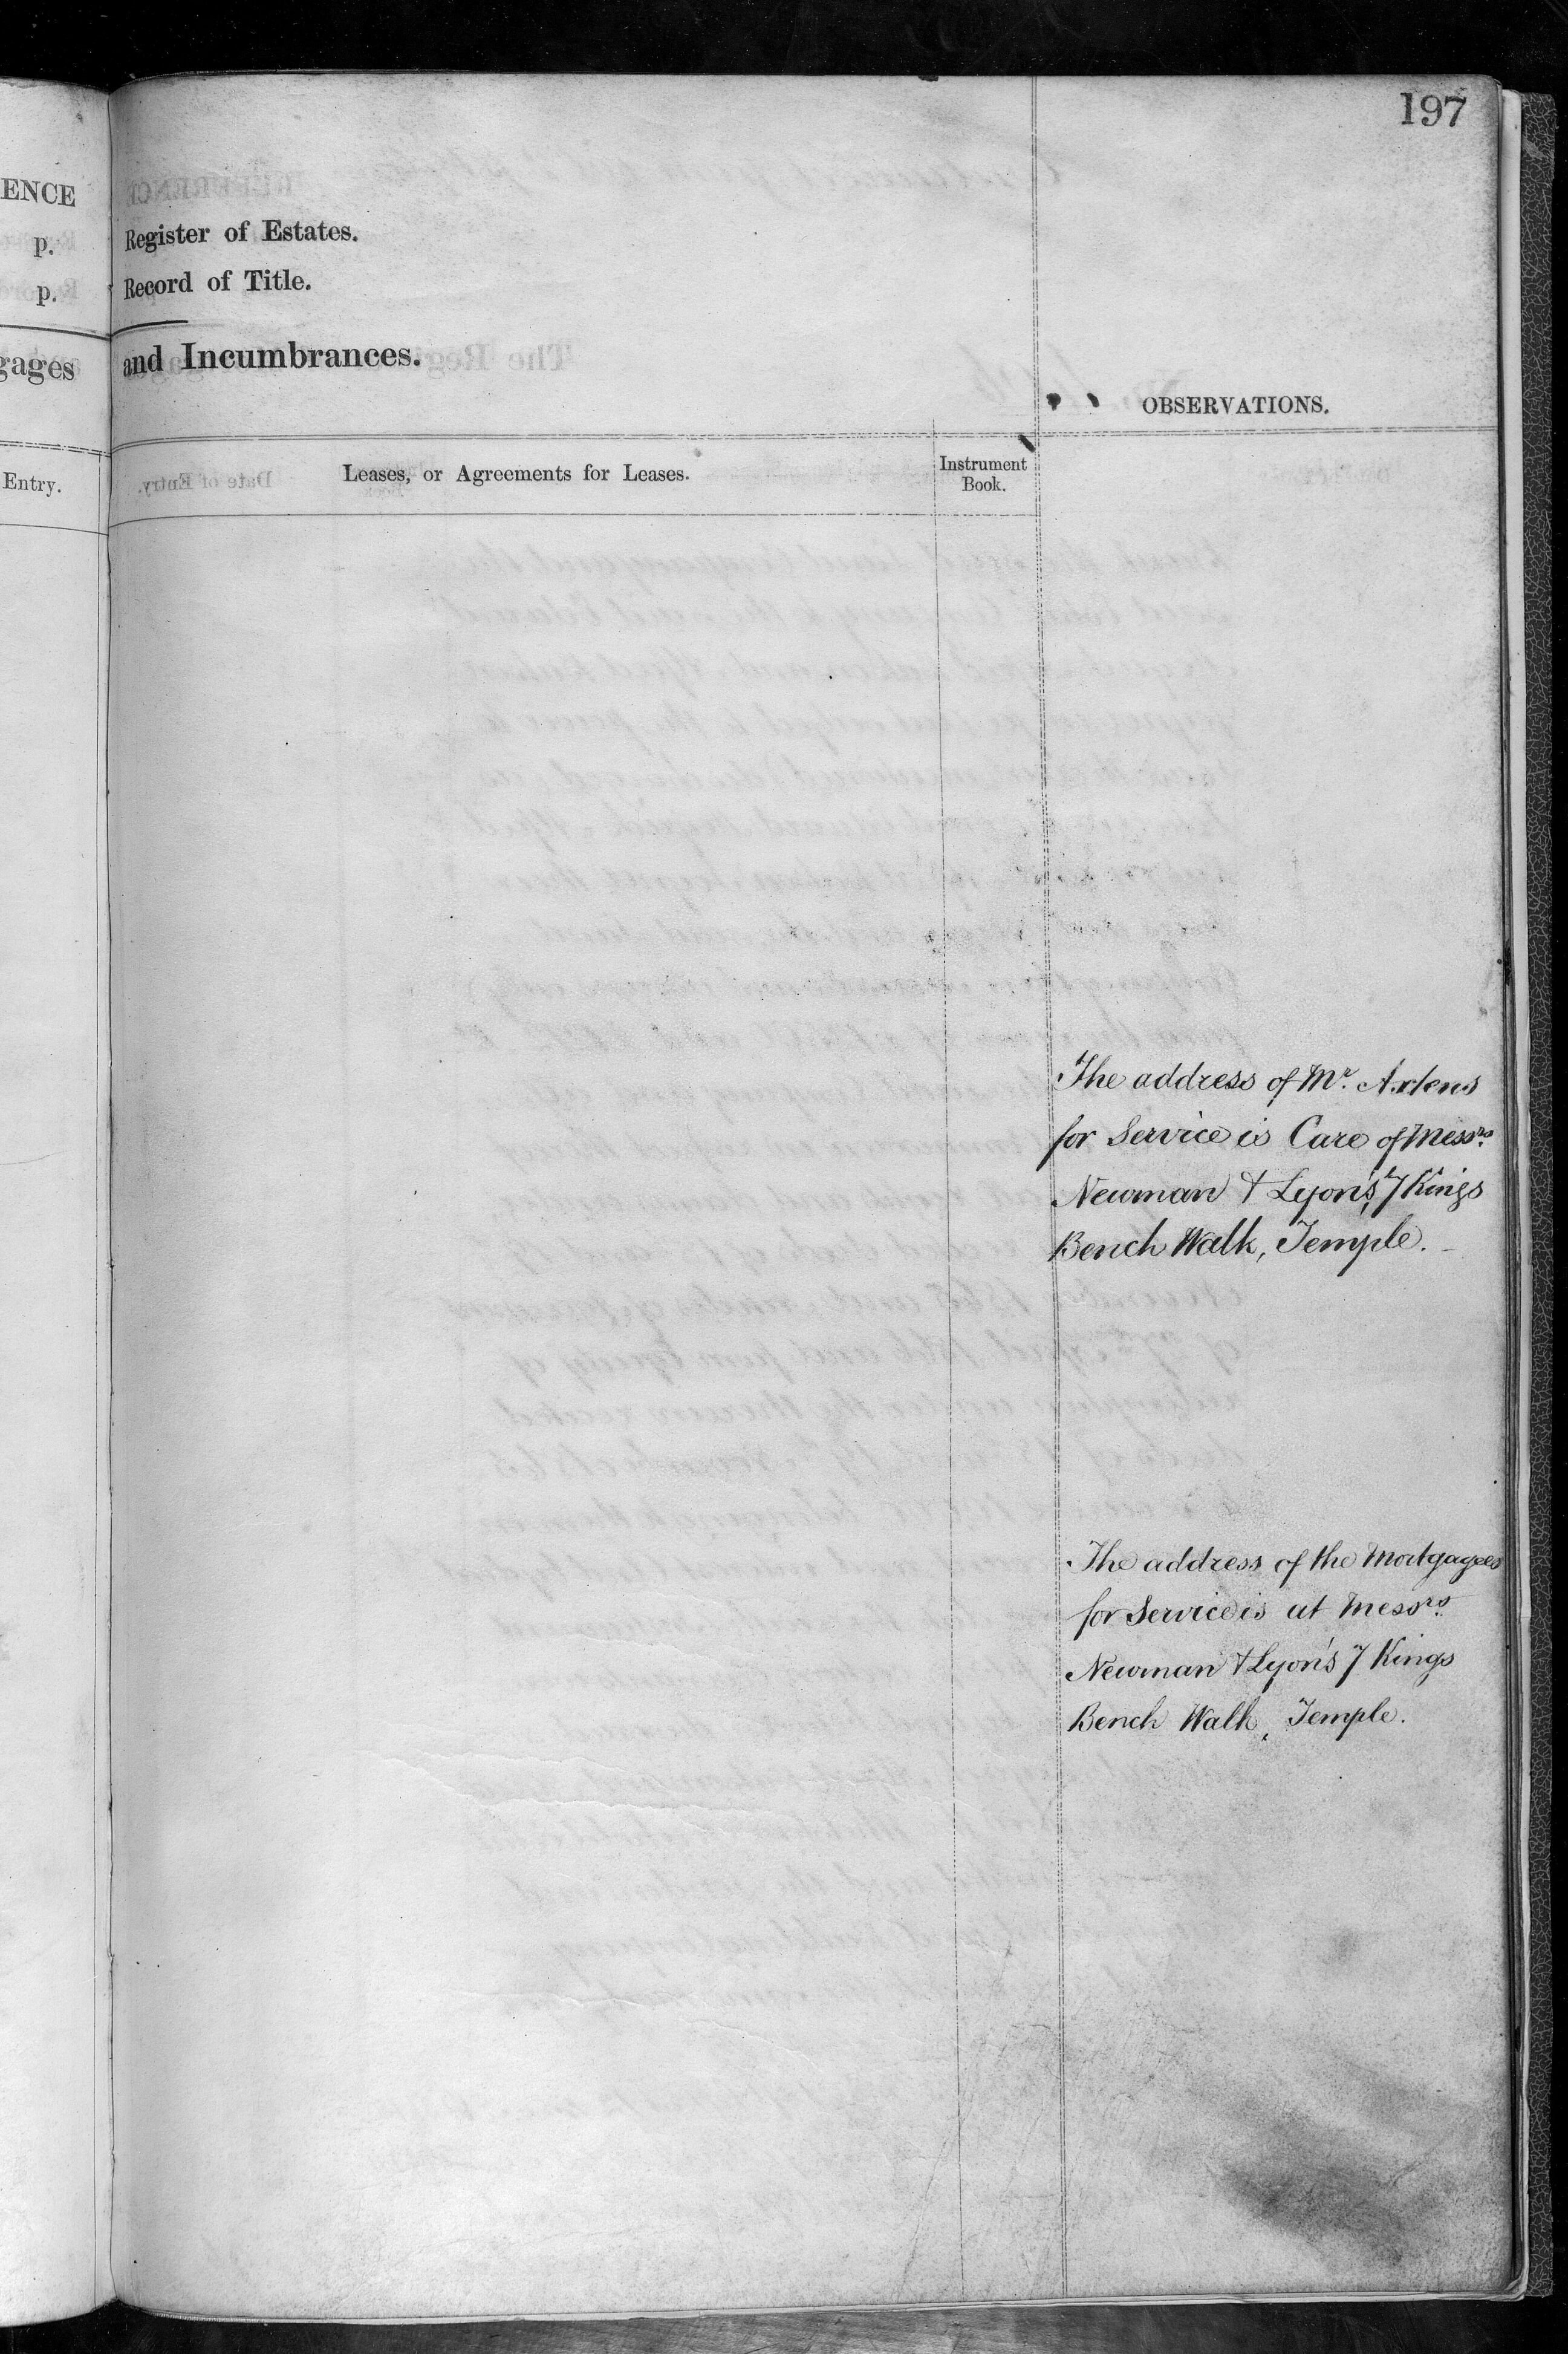 197
ENCE
p.
p.
gages
Entry.
Register of Estates.
Record of Title.
and Incumbrances.
OBSERVATIONS.
Leases, or Agreements for Leases.
Instrument
Book.
The address of Mr. Axtens
for Service is Care of Messrs.
Newman & Lyon's, 7 Kings
Bench Walk, Temple.
The address of the Mortgagees
for Service is at Messrs.
Newman & Lyon's 7 Kings
Bench Walk, Temple.